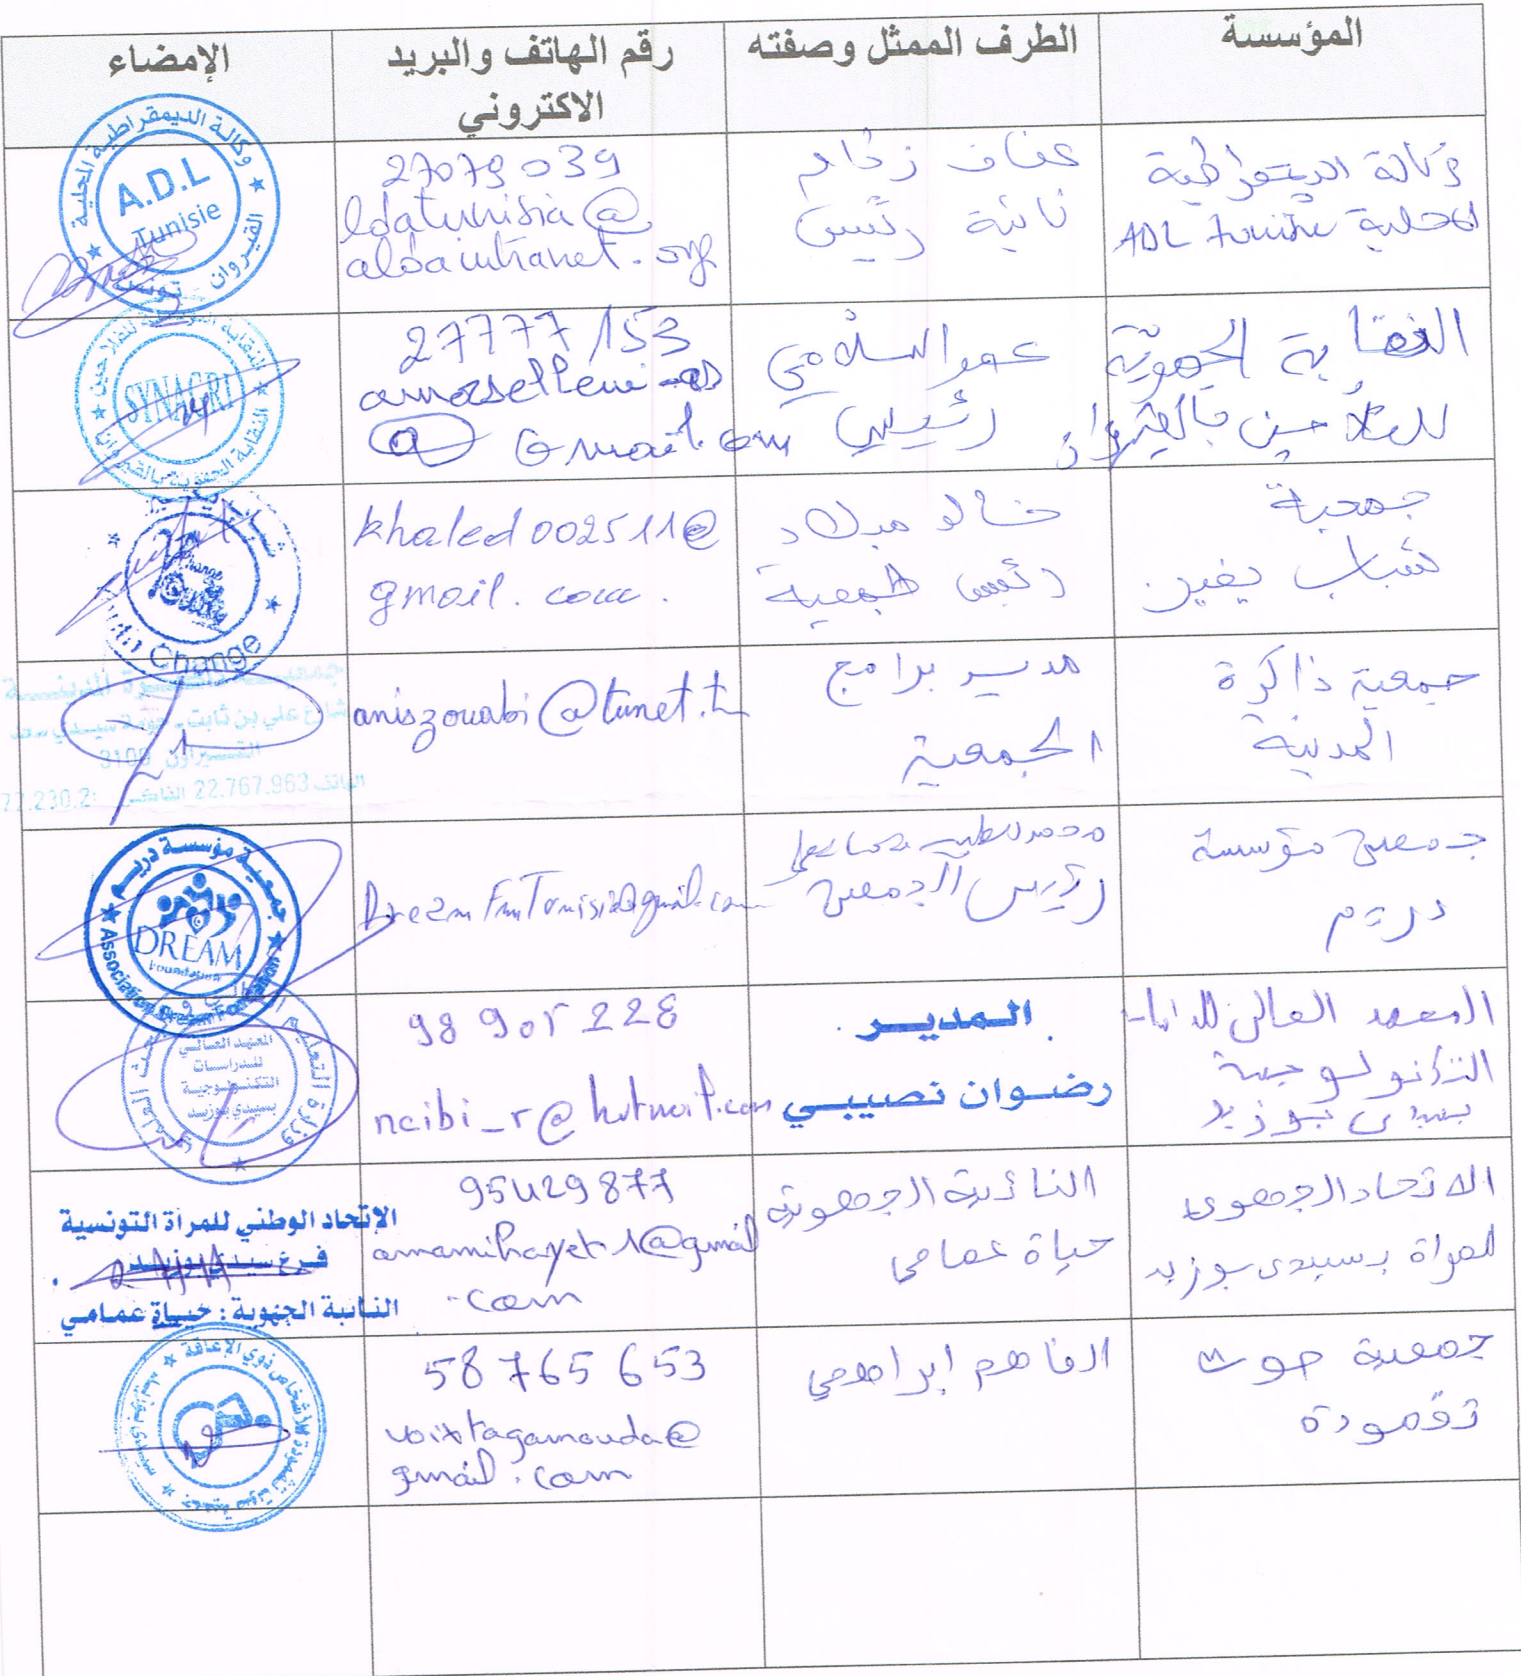 المؤسسة
الطرف الممثل وصفته
رقم الهاتف والبريد
الاكتروني
الإمضاء
وكالة الديمقراطية
المحلية ADL Tunisie
عفاف
نائبة رئيس
27079039
ldatunisia@
aldaintranet.org
وكالة الديمقراطية المحلية
A.D.L
Tunisie
القيروان - تونس
النقابة الجهوية
للفلاحين بالقيروان
عمر السلامي
رئيس
27777153
@ Gmail.com
SYNAGRI
جمعية
شباب يغير
خالد ميلاد
رئيس جمعية
khaled002511@
gmail.com.
Change
جمعية ذاكرة
المدينة
مدير برامج
الجمعية
aniszouabi@tunet.tn
شارع علي بن ثابت - حومة سيدي سعد
القيروان 3100
الهاتف 22.767.963 الفاكس
جمعية مؤسسة
دريم
محمد
رئيس الجمعية
جمعية مؤسسة دريم
DREAM
Foundation
Association Dream Foundation
المعهد العالي للدراسات
التكنولوجية
بسيدي بوزيد
المدير
رضوان نصيبي
98 905 228
ncibi_r@hotmail.com
المعهد العالي
للدراسات
التكنولوجية
بسيدي بوزيد
الاتحاد الجهوي
للمرأة بسيدي بوزيد
النائبة الجهوية
حياة عمامي
95429877
amamihayet1@gmail
.com
الإتحاد الوطني للمرأة التونسية
فرع سيدي بوزيد
النائبة الجهوية : حياة عمامي
جمعية صوت
تقمودة
ابراهمي
58765653
voixtagamouda@
gmail.com